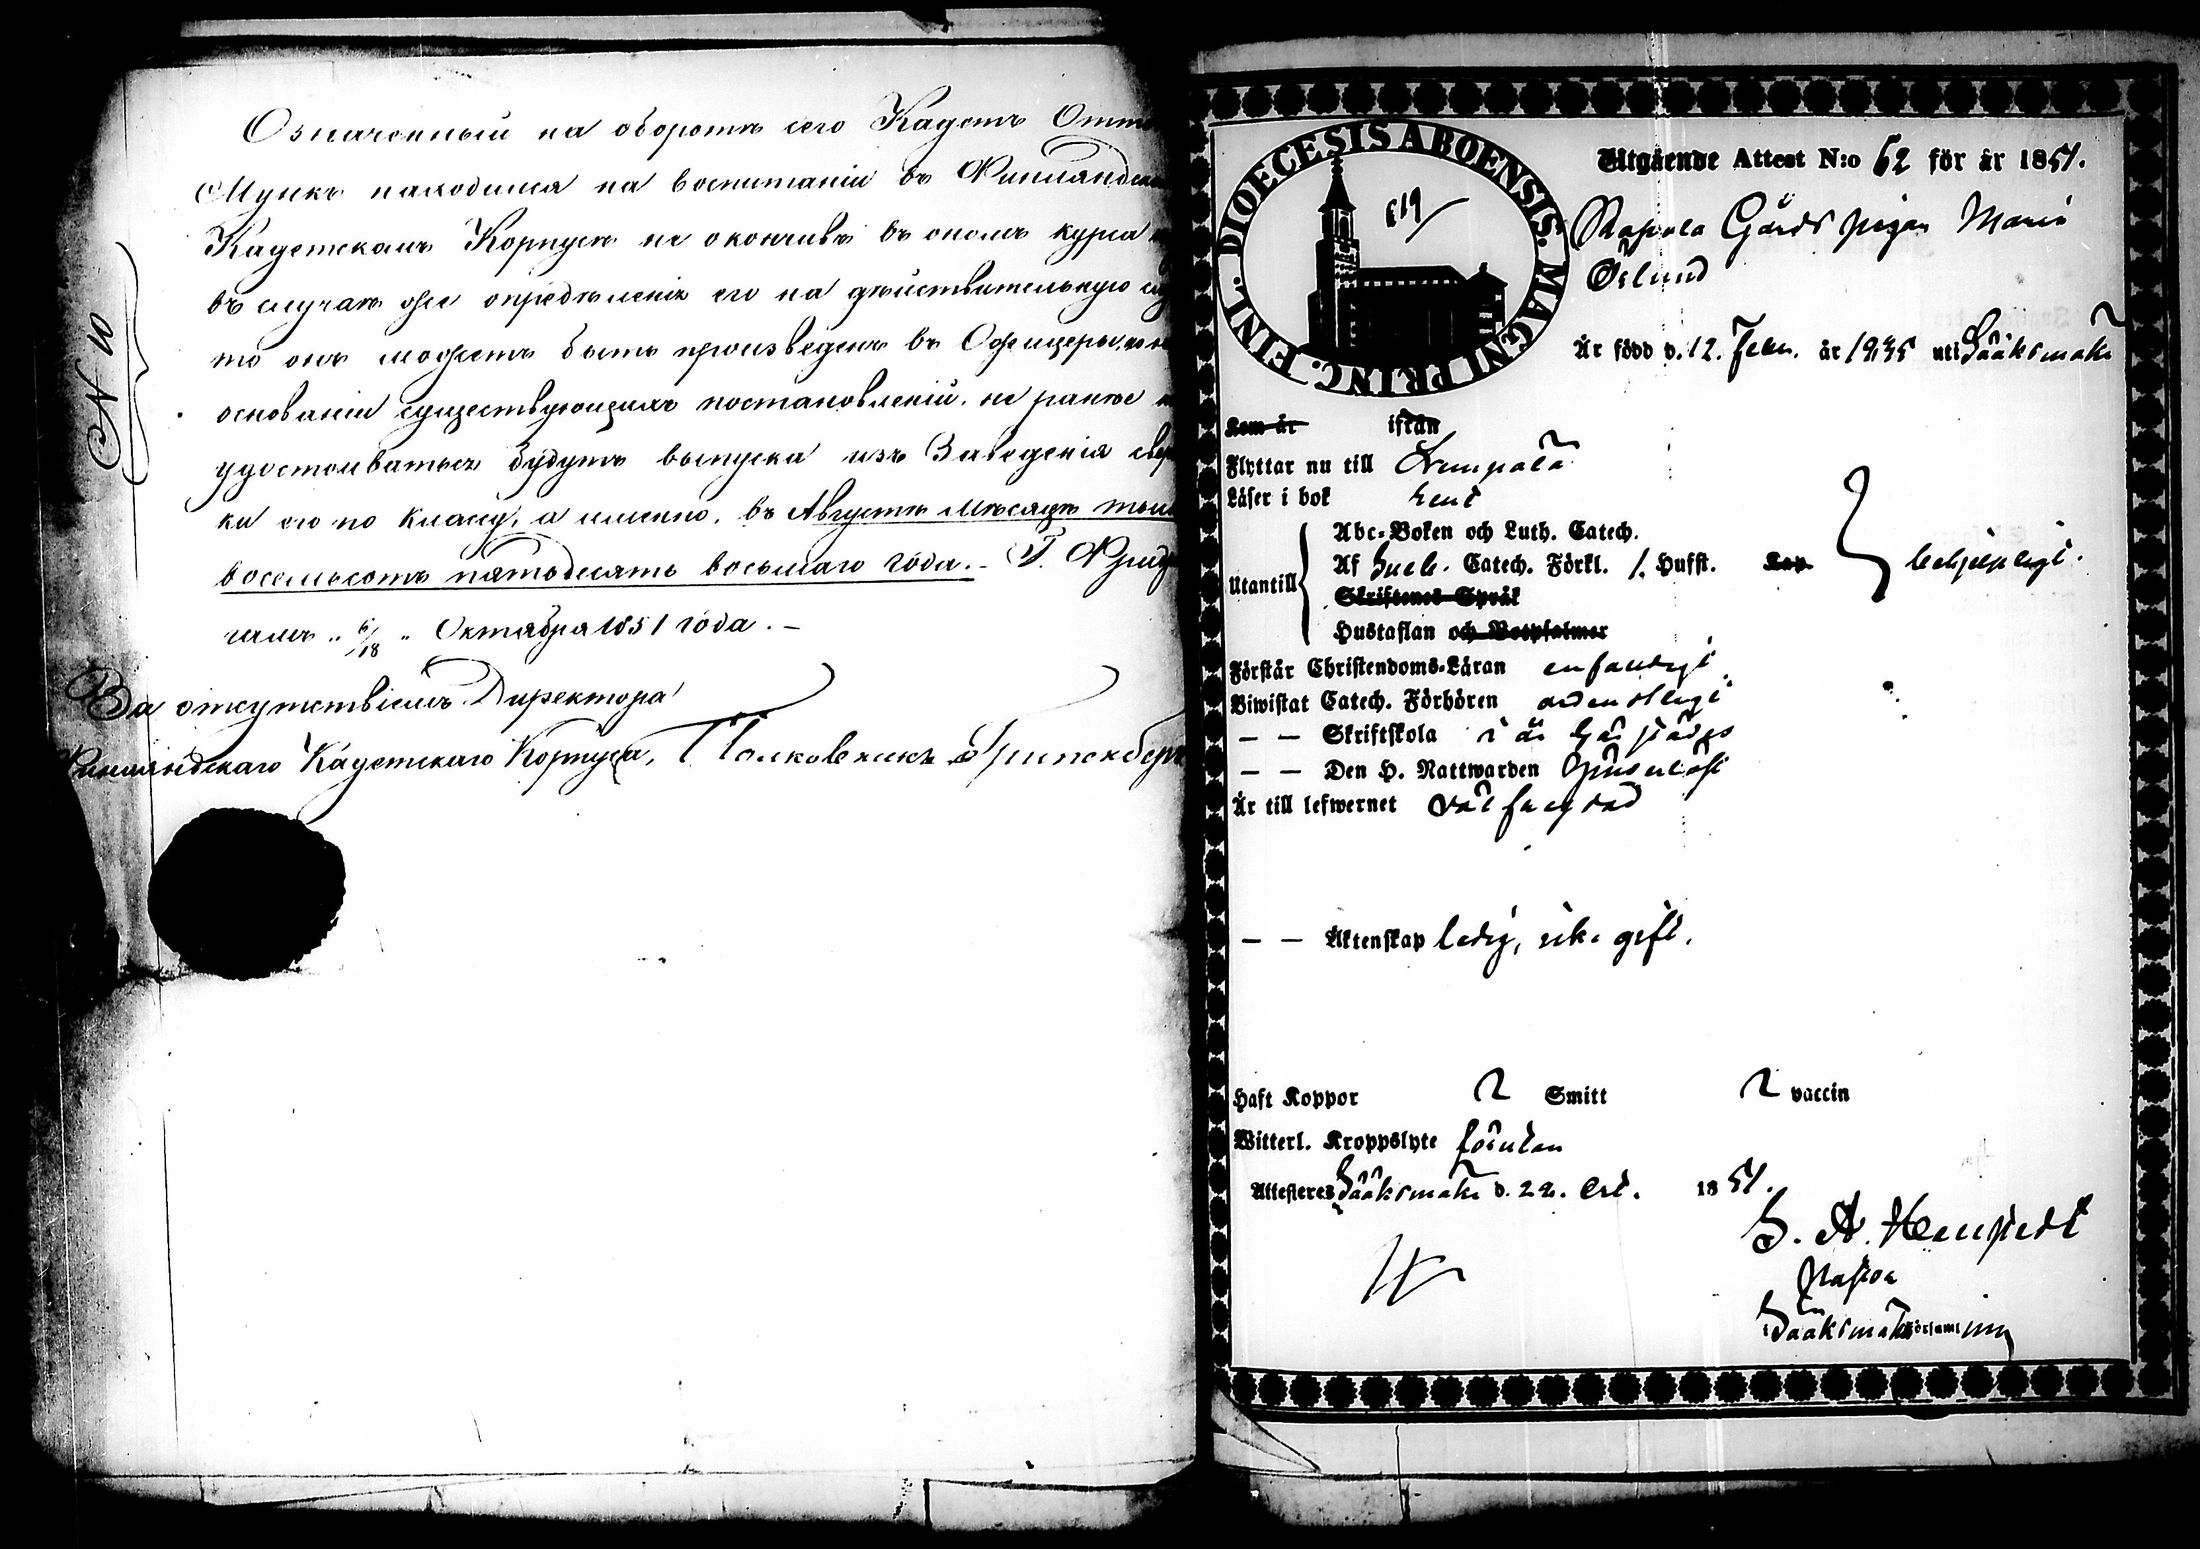 Означенный на оборотѣ сего Кадетъ Отто
Мункъ находился на воспитаніи въ Финляндско
Кадетскомъ Корпусѣ не окончивъ въ ономъ курса
въ случаѣ же опредѣленія его на дѣйствительную слу
то онъ можетъ быть произведенъ въ Офицеры, на
основаніи существующихъ постановленій, не ранѣе
удостоиваться будутъ выпуска изъ Заведенія свер
ки его по классу, а именно, въ Августѣ мѣсяцѣ тыс
восемьсотъ пятьдесятъ восьмаго года. – Г. Фрид
гамъ „ 6/18 „ Октября 1851 года. –
За отсутствіемъ Директора
Финляндскаго Кадетскаго Корпуса, Полковникъ
N 10
DIOECESIS ABOENSIS. MAGNI PRINC. FINL.
619
Utgående Attest N:o 62 för år 1851.
Rapola Gårds pigan Maria
Öslund
Är född d. 12. Febr. år 1835 uti Sääksmäki
Kom år ifrån
Flyttar nu till Lempälä
Läser i bok rent
Utantill
Abc-Boken och Luth. Catech.
Af Sveb. Catech. Förkl. 1. Hufst. Kap
behjelpligt.
Skriftenes Språk
Hustaflan och Botpsalmer
Förstår Christendoms-Läran enfaldigt
Biwistat Catech. Förhören ordentligt
— — Skriftskola i år
— — Den H. Nattwarden
Är till lefwernet väl frägdad
— — Äktenskap ledig, icke gift.
Haft Koppor Smitt vaccin
Witterl. Kroppslyte förutan
Attesteres Sääksmäki d. 22. Oct. 1851.
G. A.
Pastor
i Sääksmäki församling